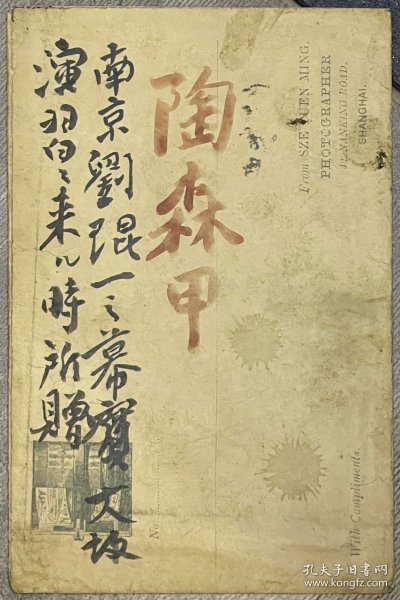 From SZE YUEN MING.
PHOTOGRAPHER
NANKING ROAD,
SHANGHAI.
With Compliments.
陶森甲
南京劉琨一之幕賓大坂
演習ニ来ル時所贈
No.
孔夫子旧书网
www.kongfz.com